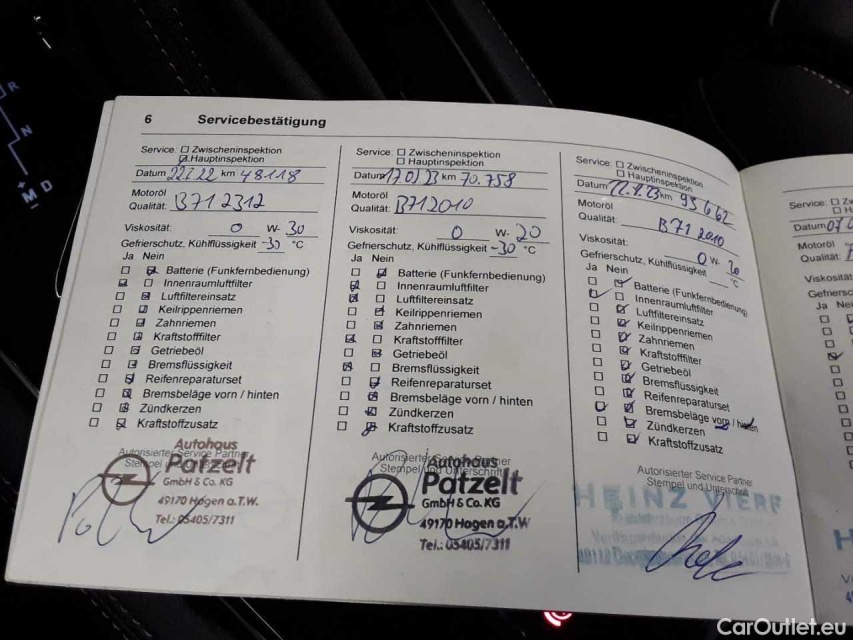 6 Servicebestätigung
Service: Zwischeninspektion
Hauptinspektion
Datum km 48118
Motoröl
Qualität: B712312
Viskosität: 0 W- 30
Gefrierschutz, Kühlflüssigkeit -30 °C
Ja Nein
Batterie (Funkfernbedienung)
Innenraumluftfilter
Luftfiltereinsatz
Keilrippenriemen
Zahnriemen
Kraftstofffilter
Getriebeöl
Bremsflüssigkeit
Reifenreparaturset
Bremsbeläge vorn / hinten
Zündkerzen
Kraftstoffzusatz
Autorisierter Service Partner
Autohaus
Patzelt
GmbH & Co. KG
49170 Hagen a.T.W.
Tel.: 05405/7311
Service: Zwischeninspektion
Hauptinspektion
Datum km 70.758
Motoröl
Qualität: B712010
Viskosität: 0 W- 20
Gefrierschutz, Kühlflüssigkeit -30 °C
Ja Nein
Batterie (Funkfernbedienung)
Innenraumluftfilter
Luftfiltereinsatz
Keilrippenriemen
Zahnriemen
Kraftstofffilter
Getriebeöl
Bremsflüssigkeit
Reifenreparaturset
Bremsbeläge vorn / hinten
Zündkerzen
Kraftstoffzusatz
Autorisierter Service Partner
Stempel und Unterschrift
Autohaus
Patzelt
GmbH & Co. KG
49170 Hagen a.T.W
Tel.: 05405/7311
Service: Zwischeninspektion
Hauptinspektion
Datum km 95662
Motoröl
Qualität B71 2010
Viskosität: 0 W- 20
Gefrierschutz, Kühlflüssigkeit °C
Ja Nein
Batterie (Funkfernbedienung)
Innenraumluftfilter
Luftfiltereinsatz
Keilrippenriemen
Zahnriemen
Kraftstofffilter
Getriebeöl
Bremsflüssigkeit
Reifenreparaturset
Bremsbeläge vorn / hinten
Zündkerzen
Kraftstoffzusatz
Autorisierter Service Partner
Stempel und Unterschrift
HEINZ
Service:
Datum
Motoröl
Qualität:
Ja
R
N
D
M
CarOutlet.eu